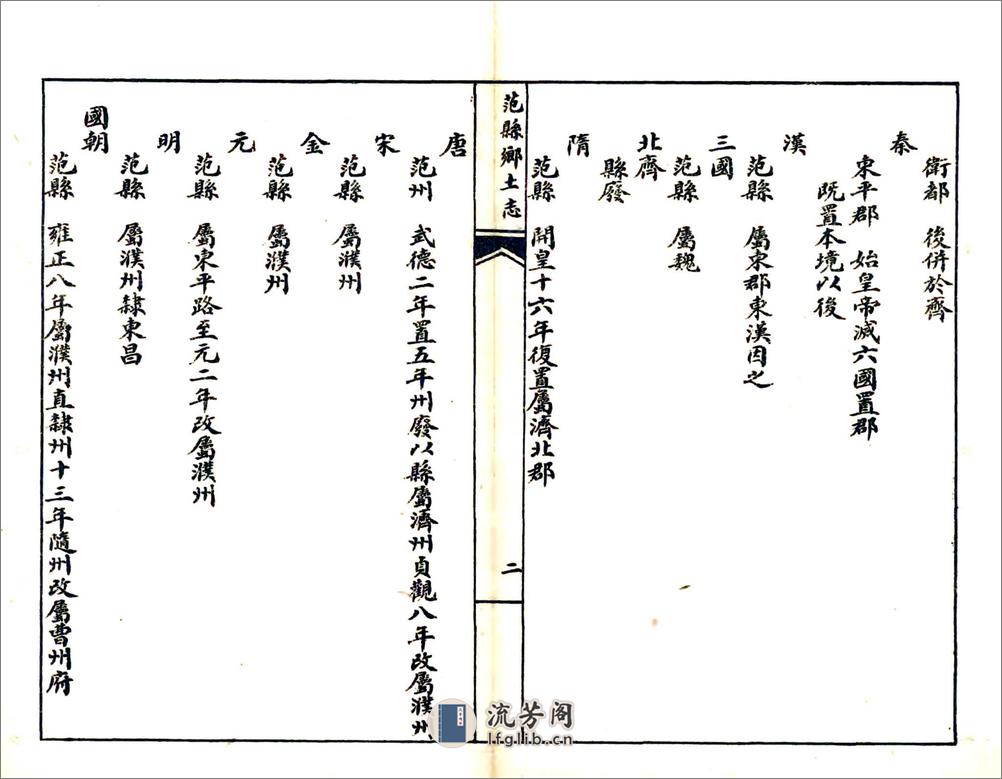 衛都　後併於齊
秦
東平郡　始皇帝滅六國置郡
既置本境以後
漢
范縣　屬東郡東漢因之
三國
范縣　屬魏
北齊
縣廢
隋
范縣　開皇十六年復置屬濟北郡
范縣鄉土志
二
唐
范州　武德二年置五年州廢以縣屬濟州貞觀八年改屬濮州
宋
范縣　屬濮州
金
范縣　屬濮州
元
范縣　屬東平路至元二年改屬濮州
明
范縣　屬濮州隸東昌
國朝
范縣　雍正八年屬濮州直隸州十三年隨州改屬曹州府
流芳阁
lfglib.cn